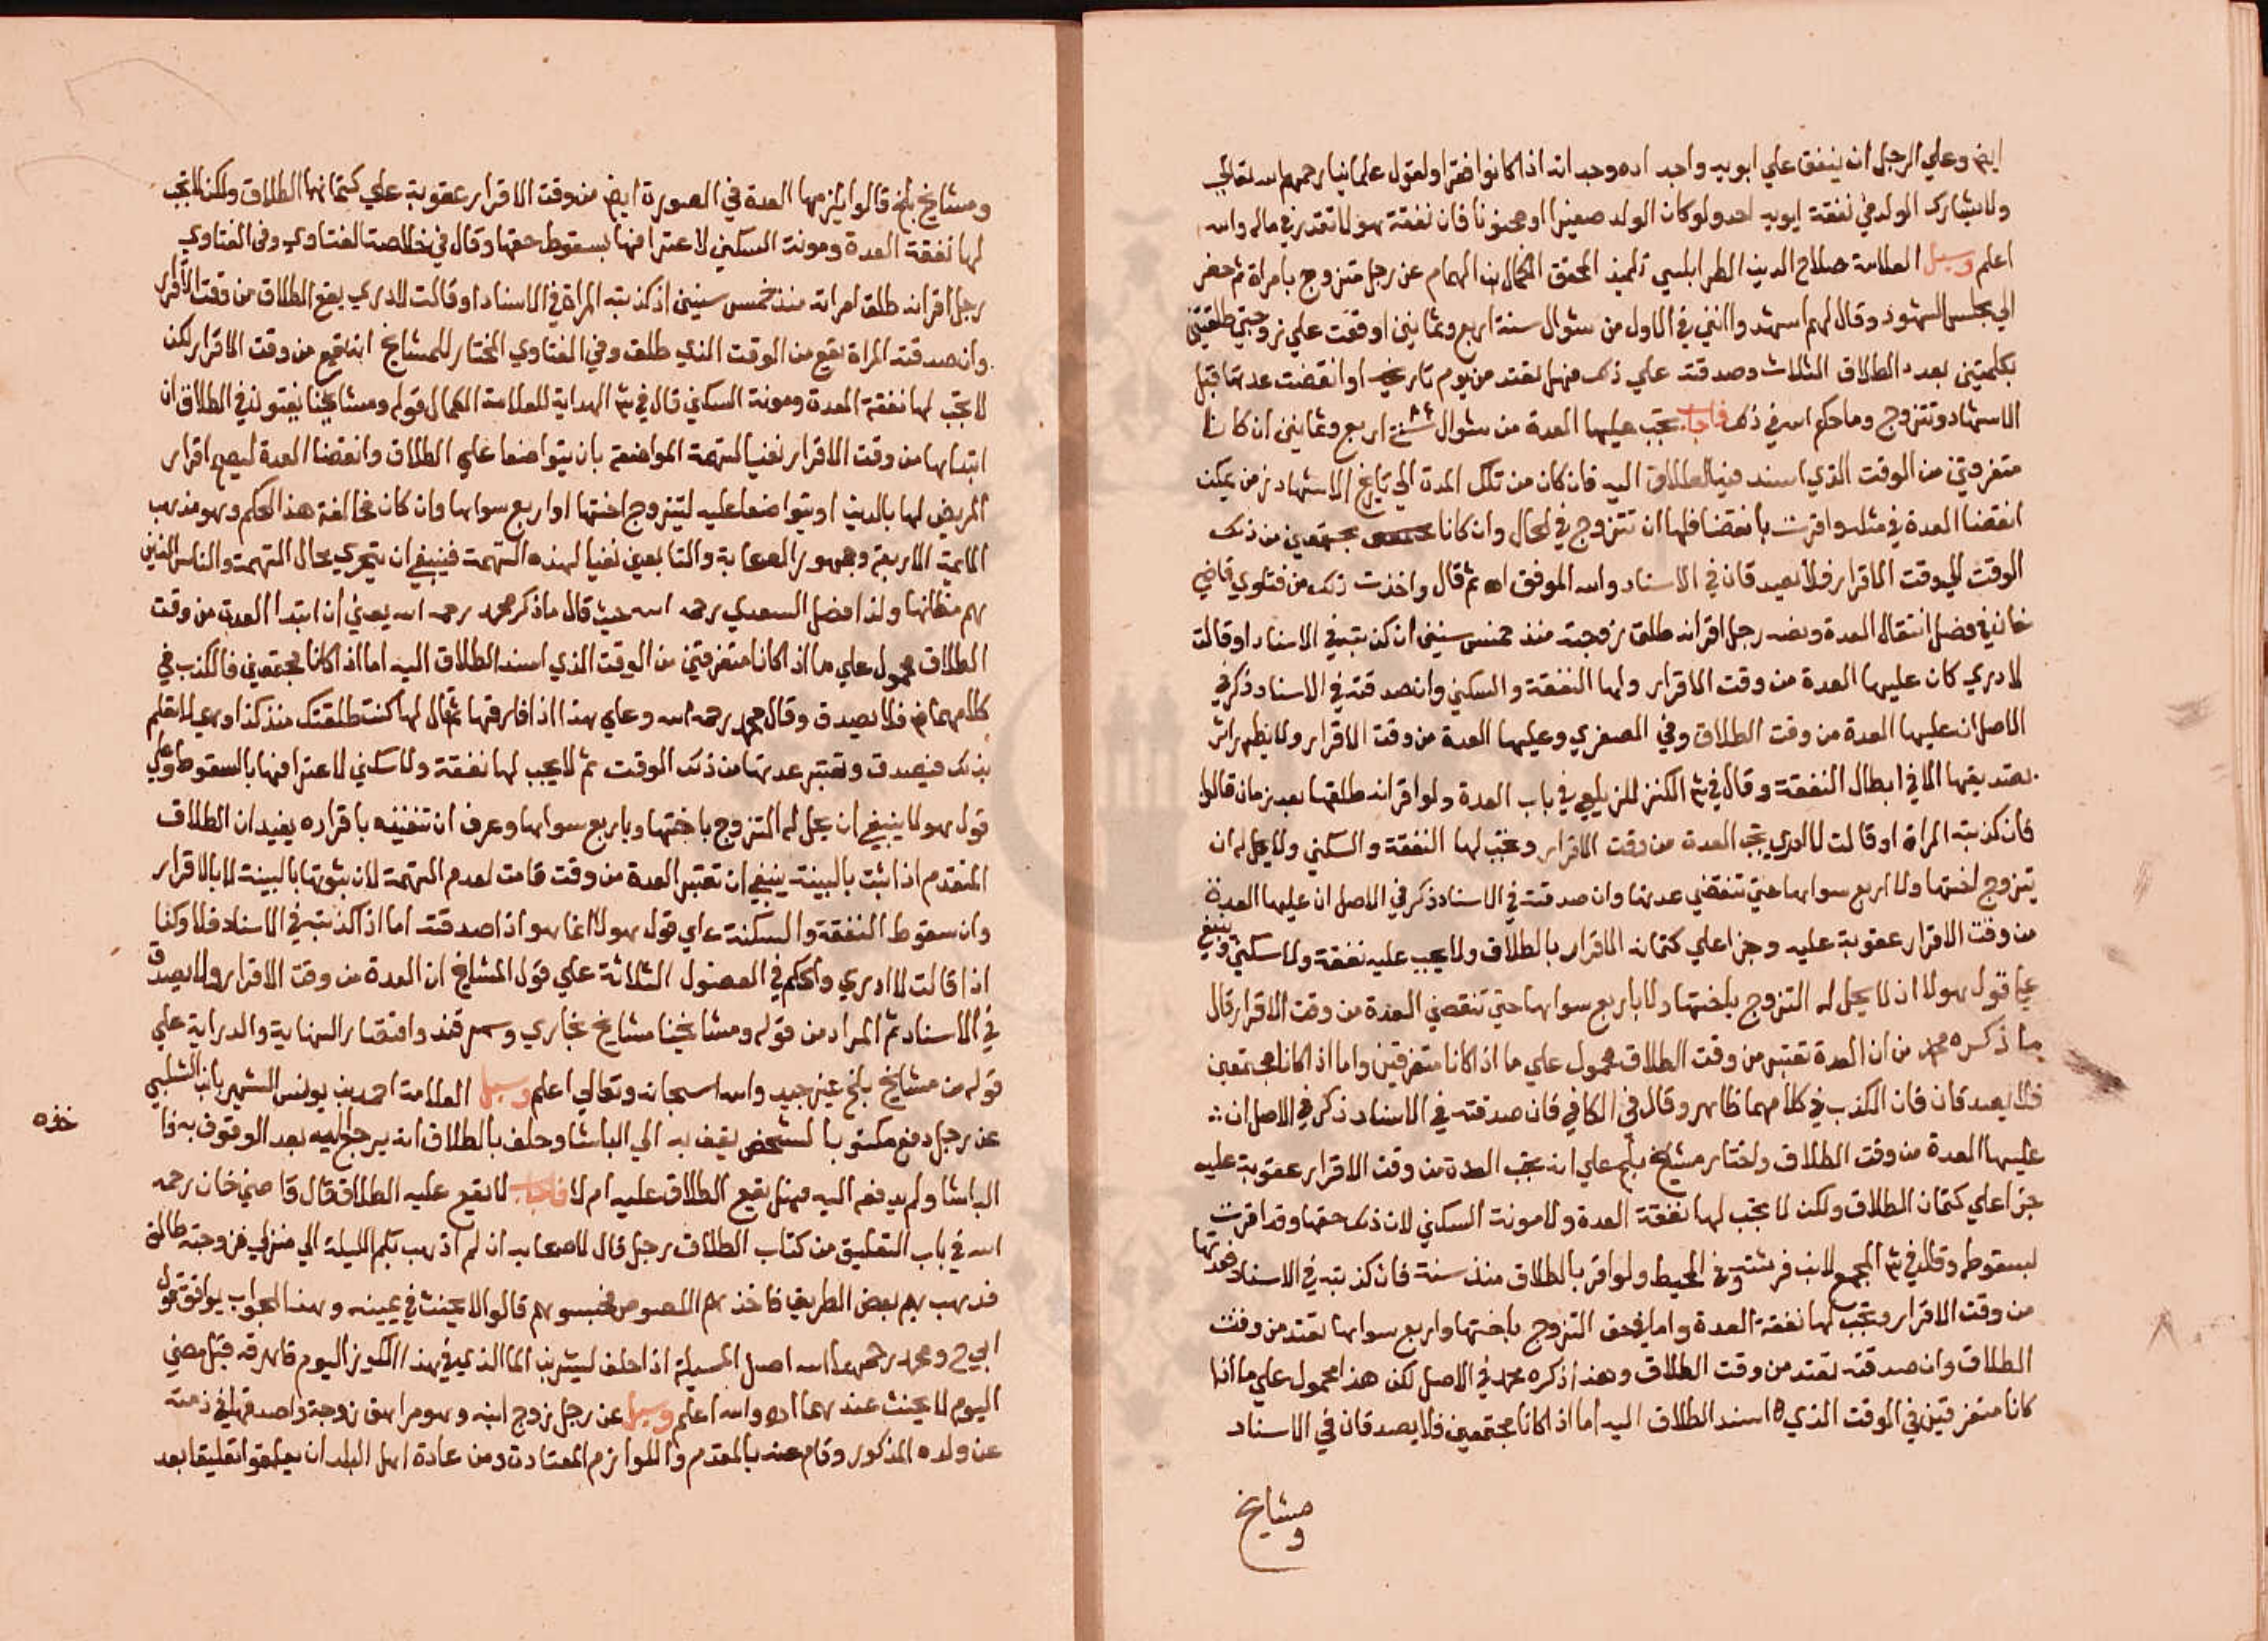 ايض وعلي الرجل ان ينفق علي ابويه واجداده وجداته اذا كانوا فقرا ولقول علمائنا رحمهم الله تعالي
ولا يشارك الولد في نفقة ابويه احد ولو كان الولد صغيرا او مجنونا فان نفقة هولا تقدر في ماله والله
اعلم وسيل العلامة صلاح الدين الطرابلسي تلميذ المحقق الكمال ابن الهمام عن رجل متزوج بامراة ثم حضر
الي مجلس الشهود وقال لهم اشهدوا انني في الاول من شوال سنة اربع وثمانين اوقعت علي زوجتي طلقتين
بكلمتين بعدد الطلاق الثلاث وصدقته علي ذلك فهل تعتد من يوم تاريخه او انقضت عدتها قبل
الاشهاد وتتزوج وما حكم الله في ذلك فاجاب تجب عليها العدة من شوال سنة اربع وثمانين ان كانا
متفرقين من الوقت الذي اسند فيه الطلاق اليه فان كان من تلك المدة الي تاريخ الاشهاد زمن يمكن
انقضا العدة في مثله واقرت بانقضا فلها ان تتزوج في الحال وان كانا مجتمعين من ذلك
الوقت الي وقت الاقرار فلا يصدقان في الاسناد والله الموفق اه ثم قال واخذت ذلك من فتاوي قاضي
خان في فصل انتقال العدة ونصه رجل اقر انه طلق زوجته منذ خمس سنين ان كذبته في الاسناد او قالت
لا ادري كان عليها العدة من وقت الاقرار ولها النفقة والسكني وان صدقته في الاسناد ذكر في
الاصل ان عليها العدة من وقت الطلاق وفي الصغري وعليها العدة من وقت الاقرار ولا يظهر اثر
تصديقها الا في ابطال النفقة وقال في ش الكنز للزيلعي في باب العدة ولو اقر انه طلقها بعد زمان قالوا
فان كذبته المراة او قالت لا ادري تجب العدة من وقت الاقرار وتجب لها النفقة والسكني ولا يحل له ان
يتزوج اختها ولا اربع سواها حتي تنقضي عدتها وان صدقته في الاسناد ذكر في الاصل ان عليها العدة
من وقت الاقرار عقوبة عليه وجزا علي كتمانه الاقرار بالطلاق ولا يجب عليه نفقة ولا سكني وينبغي
علي قول هولا ان لا يحل له التزوج باختها ولا باربع سواها حتي تنقضي العدة من وقت الاقرار قال
ما ذكره محمد من ان العدة تعتبر من وقت الطلاق محمول علي ما اذا كانا متفرقين واما اذا كانا مجتمعين
فلا يصدقان فان الكذب في كلامهما ظاهر وقال في الكافي فان صدقته في الاسناد ذكر في الاصل ان
عليها العدة من وقت الطلاق واختار مشايخ بلخ علي انه تجب العدة من وقت الاقرار عقوبة عليه
جزا علي كتمان الطلاق ولكن لا تجب لها نفقة العدة ولا مونة السكني لان ذلك حقها وقد اقرت
بسقوطه وقال في ش المجمع لابن فرشته وفي المحيط ولو اقر بالطلاق منذ سنة فان كذبته في الاسناد فعدتها
من وقت الاقرار وتجب لها نفقة العدة واما في حق التزوج باختها واربع سواها تعتد من وقت
الطلاق وان صدقته تعتد من وقت الطلاق وهذا ذكره محمد في الاصل لكن هذا محمول علي ما اذا
كانا متفرقين في الوقت الذي اسند الطلاق اليه اما اذا كانا مجتمعين فلا يصدقان في الاسناد
ومشايخ
ومشايخ بلخ قالوا يلزمها العدة في الصورة ايض من وقت الاقرار عقوبة علي كتمانها الطلاق ولكن لا تجب
لها نفقة العدة ومونة السكني لاعترافها بسقوط حقها وقال في خلاصة الفتاوي وفي الفتاوي
رجل اقر انه طلق امراته منذ خمس سنين اذ كذبته المراة في الاسناد او قالت لا ادري يقع الطلاق من وقت الاقرار
وان صدقته المراة يقع من الوقت الذي طلق وفي الفتاوي المختار للمشايخ انه يقع من وقت الاقرار لكن
لا تجب لها نفقة العدة ومونة السكني قال في ش الهداية للعلامة الكمال قوله ومشايخنا يفتون في الطلاق ان
ابتداها من وقت الاقرار نفيا لتهمة المواضعة بان يتواضعا علي الطلاق وانقضا العدة ليصح اقرار
المريض لها بالدين او يتواضعا عليه ليتزوج اختها او اربع سواها وان كان مخالفة هذا الحكم وهو مذهب
الايمة الاربعة وجمهور الصحابة والتابعين نفيا لهذه التهمة فينبغي ان يتحري محال التهمة والناس الذين
هم مظانها ولذا فصل السعدي رحمه الله حيث قال ما ذكر محمد رحمه الله يعني ان ابتدا العدة من وقت
الطلاق محمول علي ما اذا كانا متفرقين من الوقت الذي اسند الطلاق اليه اما اذا كانا مجتمعين فالكذب في
كلامهما ض فلا يصدق وقال محمد رحمه الله وعلي هذا اذا فارقها ثم قال لها كنت طلقتك منذ كذا وهي لا تعلم
بذلك فيصدق وتعتبر عدتها من ذلك الوقت ثم لا يجب لها نفقة ولا سكني لاعترافها بالسقوط وعلي
قول هولا ينبغي ان يحل له التزوج باختها وباربع سواها وعرف ان تقييده باقراره يفيد ان الطلاق
المتقدم اذا ثبت بالبينة ينبغي ان تعتبر العدة من وقت قامت لعدم التهمة لان ثبوتها بالبينة لا بالاقرار
وان سقوط النفقة والسكنة علي قول هولا انما هو اذا صدقته اما اذا كذبته في الاسناد فلا وكذا
اذا قالت لا ادري والحكم في الفصول الثلاثة علي قول المشايخ ان العدة من وقت الاقرار ولا يصدق
في الاسناد ثم المراد من قوله ومشايخنا مشايخ بخاري وسمرقند واقتصار النهاية والدراية علي
قوله من مشايخ بلخ غير جيد والله سبحانه وتعالي اعلم وسيل العلامة احمد بن يونس الشهير بابن الشلبي
عن رجل دفع مكتوبا لشخص يقف به الي الباشا وحلف بالطلاق انه يرجع اليه بعد الوقوف به فا
خذه
الباشا ولم يدفعه اليه فهل يقع الطلاق عليه ام لا فاجاب لا يقع عليه الطلاق قال قاضي خان رحمه
الله في باب التعليق من كتاب الطلاق رجل قال لاصحابه ان لم اذهب بكم الليلة الي منزلي فزوجته طالق
فذهب بهم بعض الطريق فاخذهم اللصوص فحبسوهم قالوا لا يحنث في يمينه وهذا الجواب يوافق قول
ابي ح ومحمد رحمهما الله اصل المسيلة اذا حلف ليشربن الما الذي في هذا الكوز اليوم فاهرقه قبل مضي
اليوم لا يحنث عندهما اه والله اعلم وسيل عن رجل زوج ابنه وهو مراهق زوجة واصدقها في ذمته
عن ولده المذكور وقام عنه بالمقدم واللوازم المعتادة ومن عادة اهل البلد ان يعلقوا تعليقا بعد